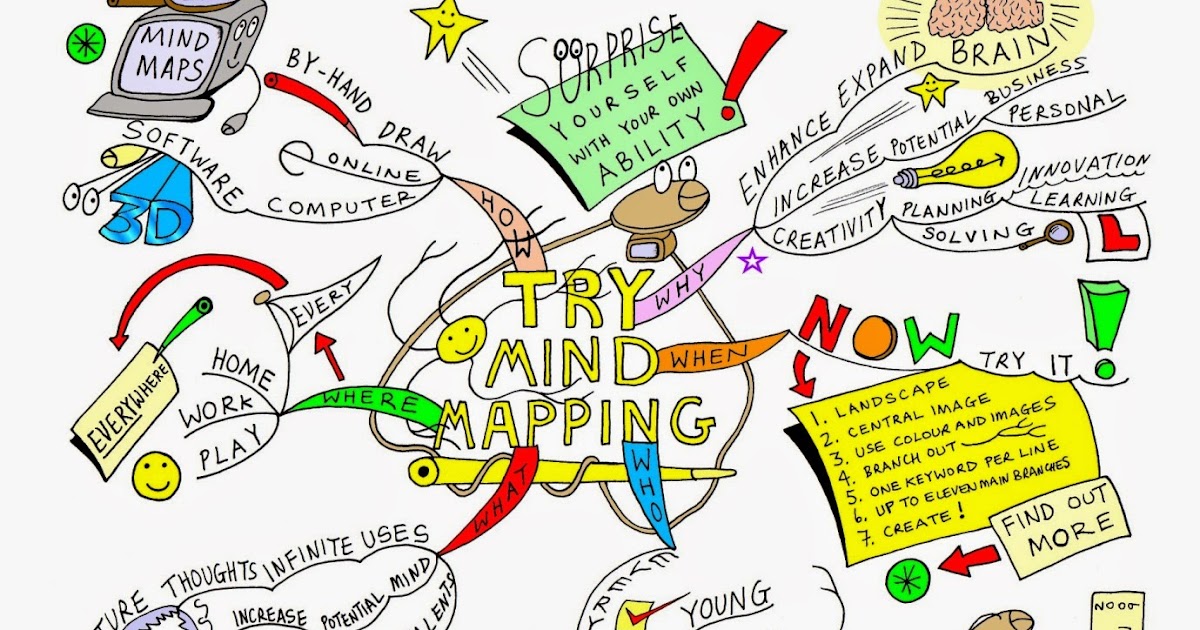 MIND
MAPS
BY-HAND
DRAW
SOFTWARE
ONLINE
COMPUTER
3D
HOW
SURPRISE
YOURSELF
WITH YOUR OWN
ABILITY
!
ENHANCE EXPAND BRAIN
INCREASE POTENTIAL BUSINESS
PERSONAL
CREATIVITY PLANNING INNOVATION
LEARNING
SOLVING
L
WHY
TRY
MIND
MAPPING
WHEN
NOW
TRY IT !
1. LANDSCAPE
2. CENTRAL IMAGE
3. USE COLOUR AND IMAGES
4. BRANCH OUT
5. ONE KEYWORD PER LINE
6. UP TO ELEVEN MAIN BRANCHES
7. CREATE!
FIND OUT
MORE
EVERY
EVERYWHERE
HOME
WORK
PLAY
WHERE
WHAT
WHO
THOUGHTS INFINITE USES
INCREASE POTENTIAL MIND
YOUNG